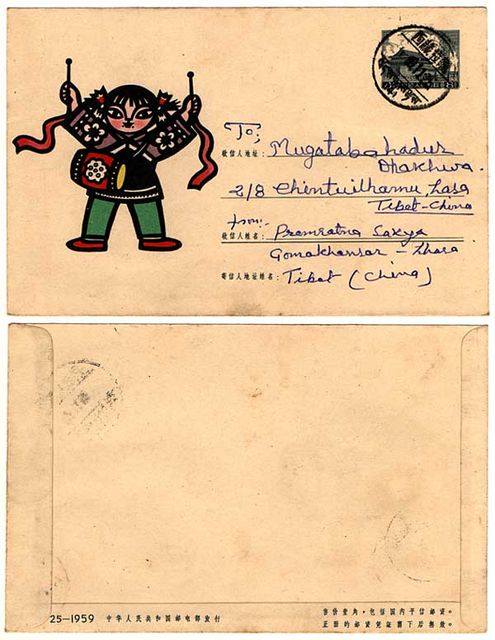 To;
收信人地址: Mugatabahadur
Dhakhwa.
2/8 Chentuilhamu Lasa
Tibet-China
from:-
收信人姓名: Premratna Sakya
Gomakhansar - Lhasa
寄信人地址姓名: Tibet (China)
25-1959 中华人民共和国邮电部发行
售价壹角,包括国内平信邮资。
正面的邮资凭证剪下后无效。